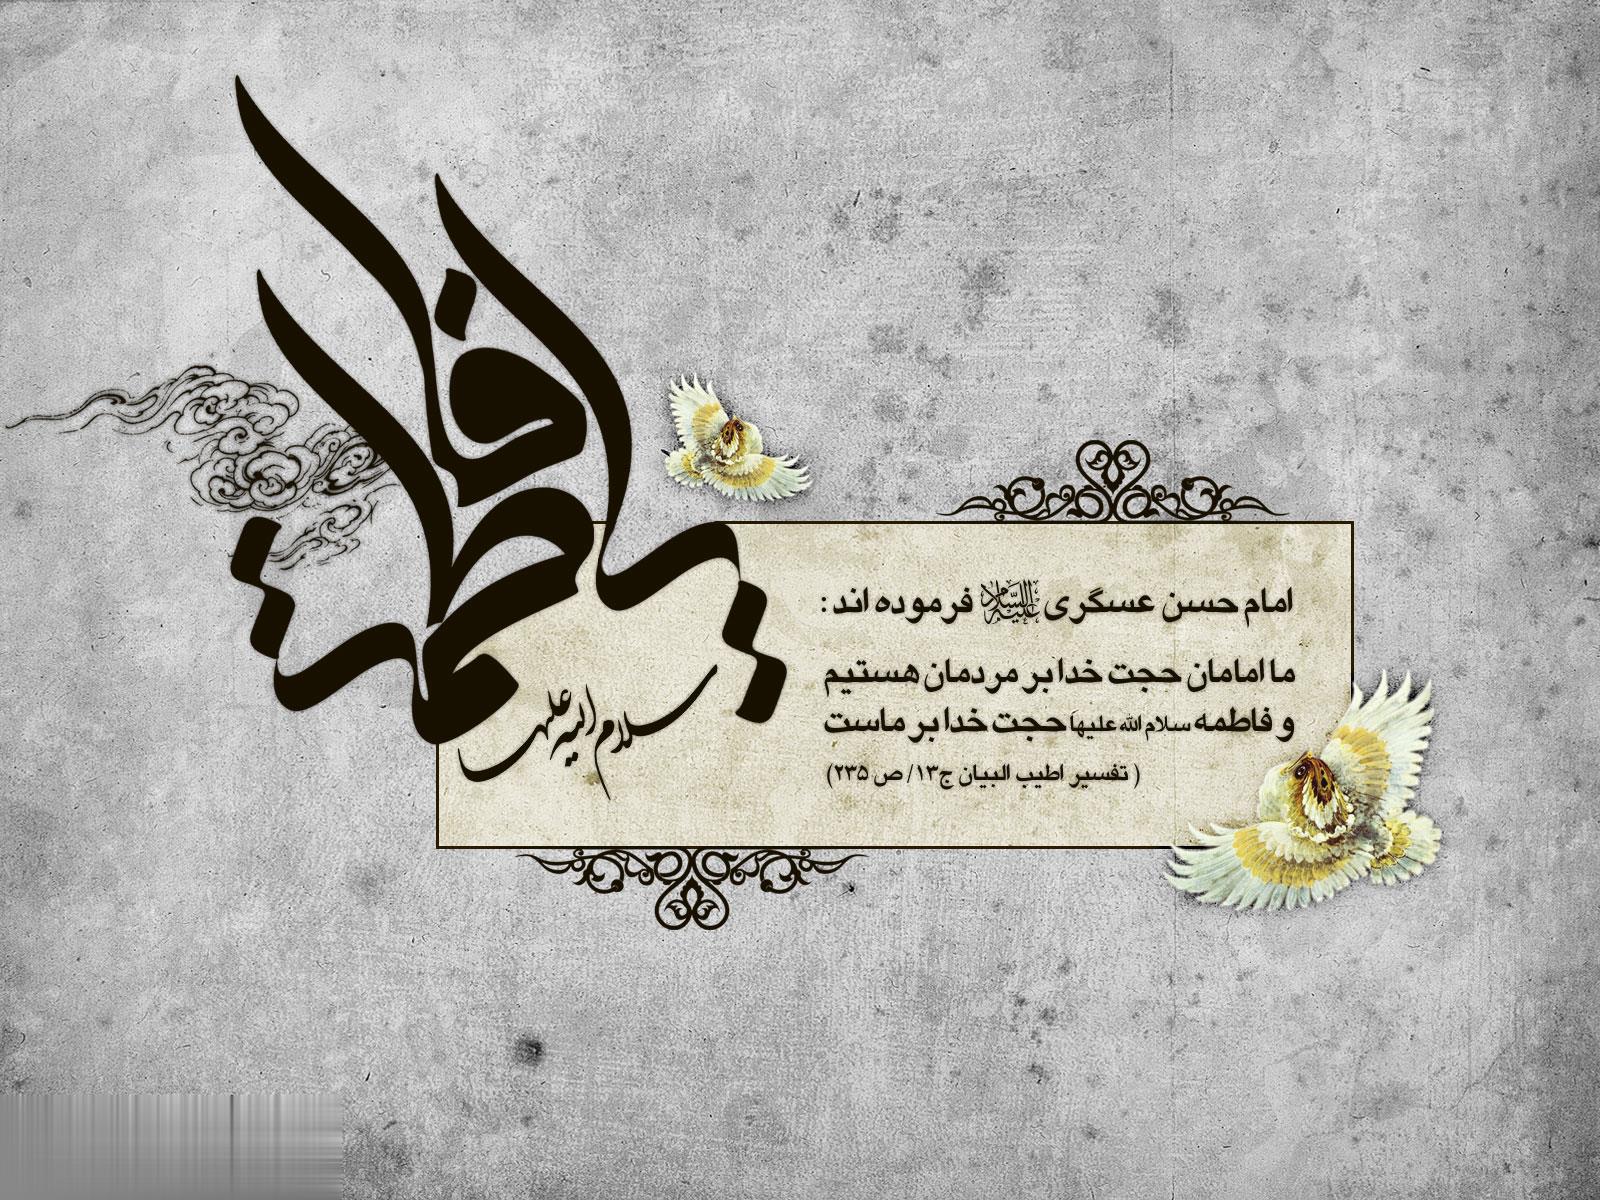 یا فاطمة
سلام الله علیها
امام حسن عسگری علیه السلام فرموده اند:
ما امامان حجت خدا بر مردمان هستیم
و فاطمه سلام الله علیها حجت خدا بر ماست
( تفسیر اطیب البیان ج۱۳/ ص ۲۳۵)